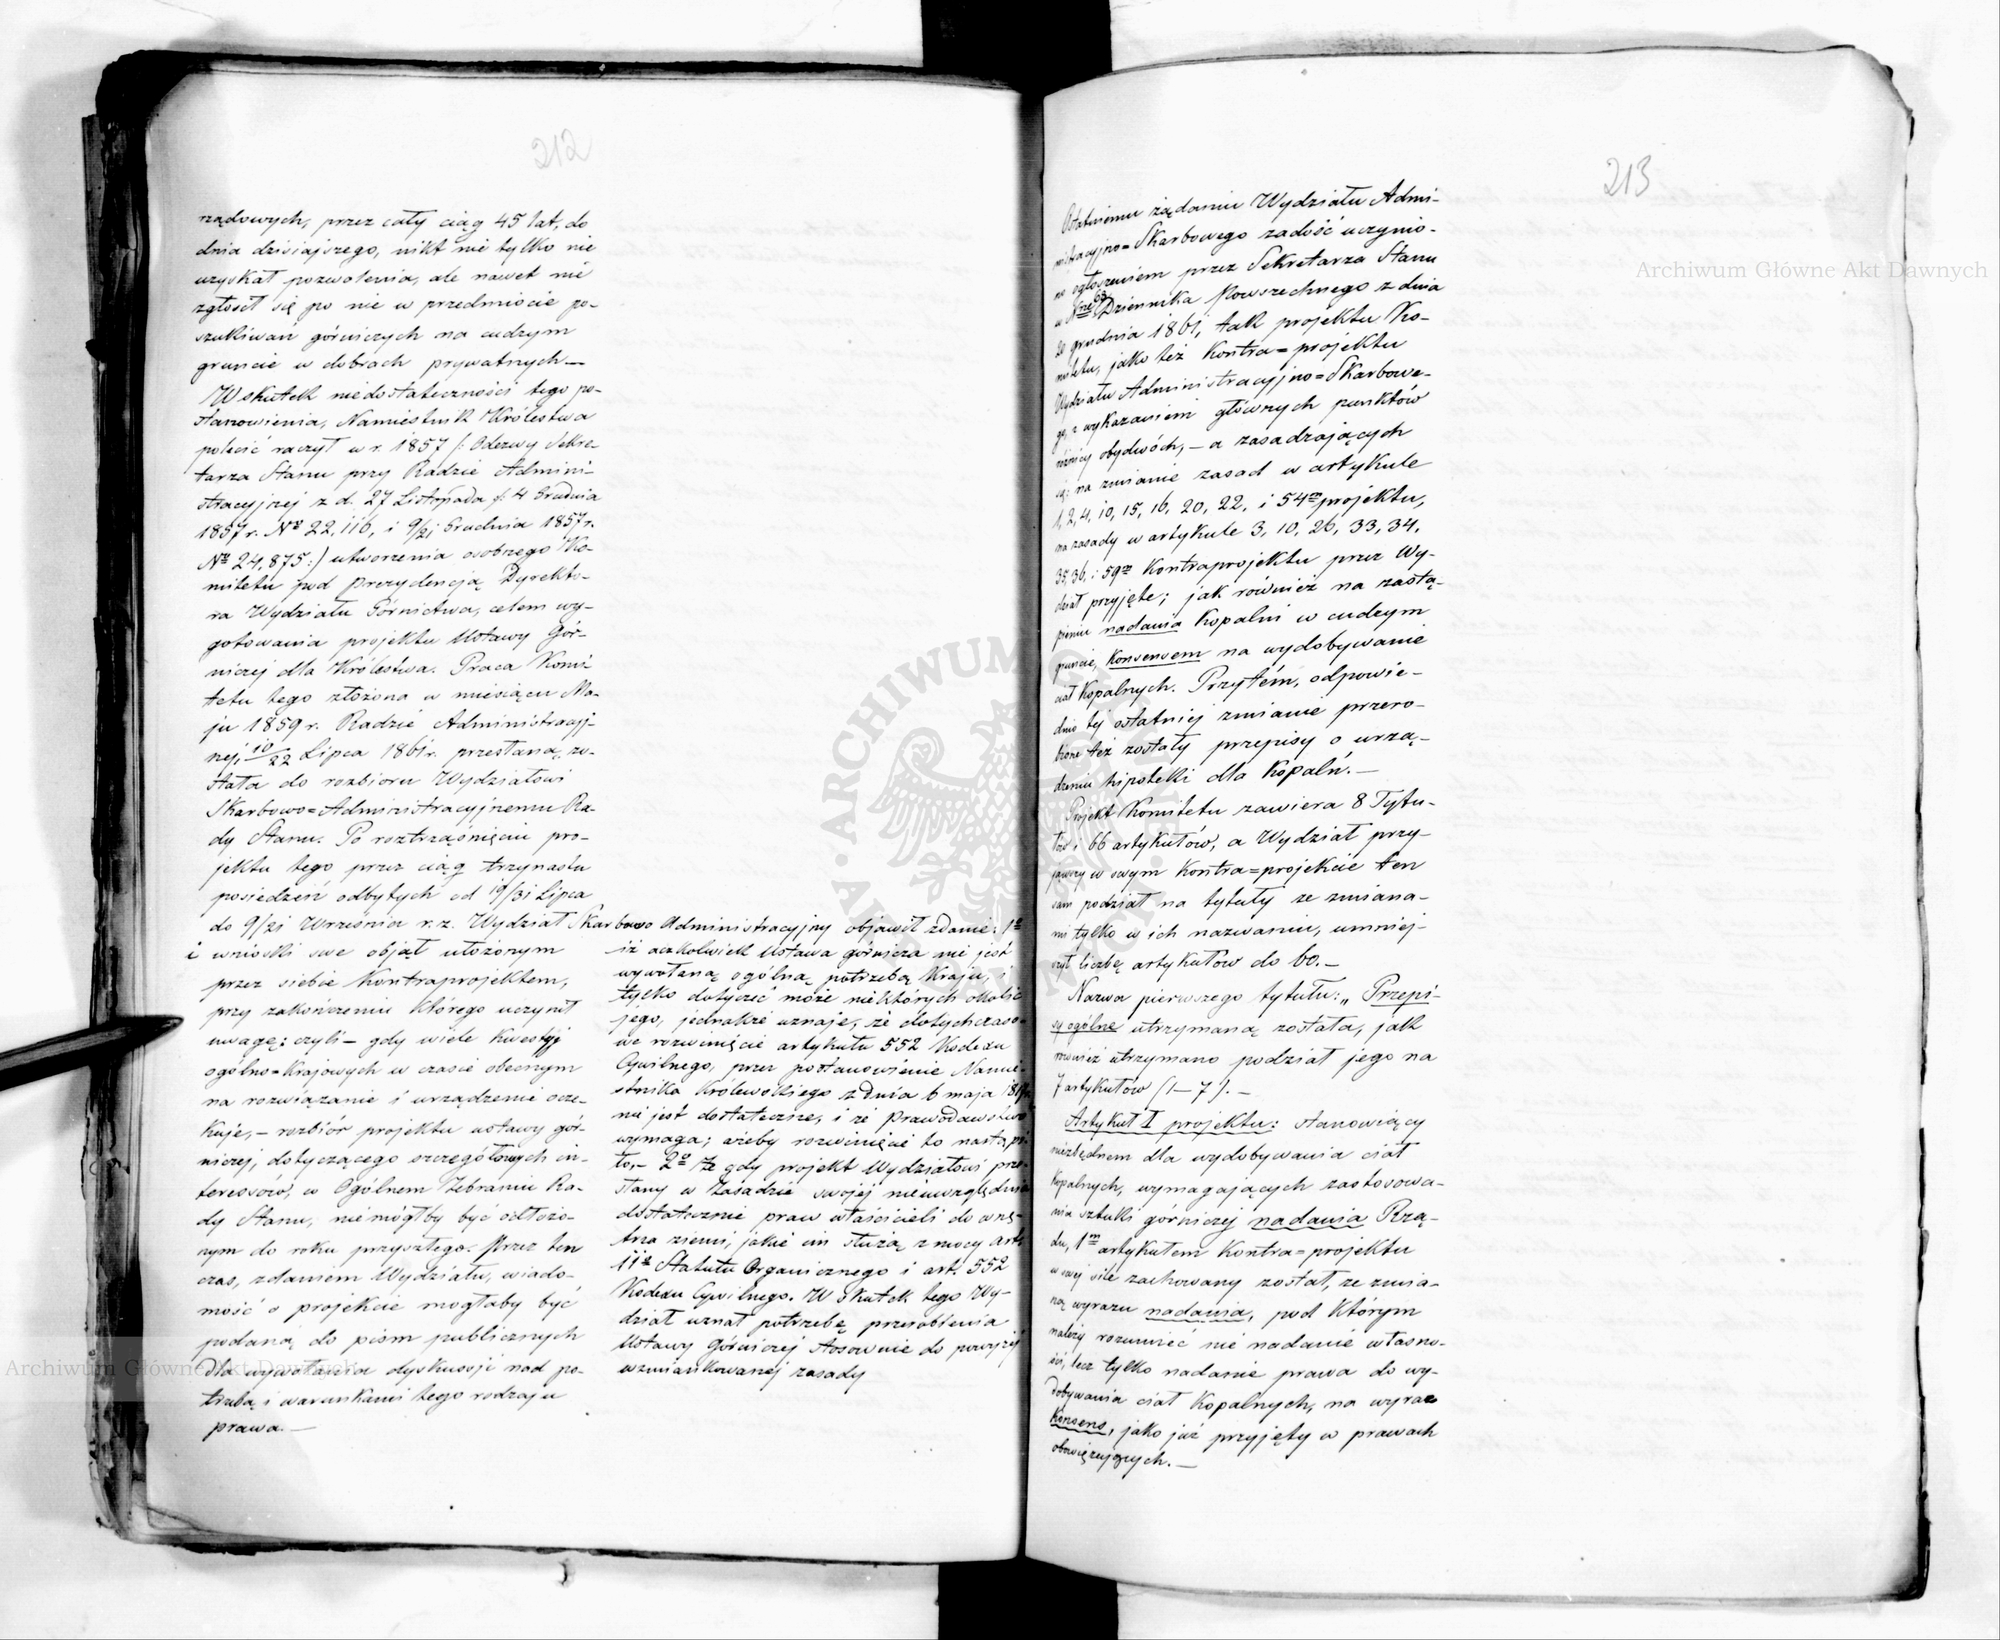 212
rządowych, przez cały ciąg 45 lat, do
dnia dzisiajszego, nikt nie tylko nie
uzyskał pozwolenia, ale nawet nie
zgłosił się po nie w przedmiocie po-
szukiwań górniczych na cudzym
gruncie w dobrach prywatnych —
Wskutek niedostateczności tego po-
stanowienia, Namiestnik Królestwa
polecić raczył w r. 1857 /: Odezwy Sekre-
tarza Stanu przy Radzie Admini-
stracyjnej z d. 27 Listopada /: 4 Grudnia
1857 r. Nº 22,116, i 9/21 Grudnia 1857 r.
Nº 24,875:/ utworzenia osobnego Ko-
mitetu pod prezydencją Dyrekto-
ra Wydziału Górnictwa, celem wy-
gotowania projektu Ustawy Gór-
niczej dla Królestwa. Praca Komi-
tetu tego złożona w miesiącu Ma-
ju 1859 r. Radzie Administracyj-
nej, 10/22 Lipca 1861 r. przesłaną zo-
stała do rozbioru Wydziałowi
Skarbowo=Administracyjnemu Ra-
dy Stanu. Po roztrząśnięciu pro-
jektu tego przez ciąg trzynastu
posiedzeń odbytych od 19/31 Lipca
do 9/21 Września r. z. Wydział Skarbowo Administracyjny objawił zdanie: 1º
iż aczkolwiek Ustawa górnicza nie jest
wywołaną ogólną potrzebą Kraju, i
tylko dotyczeć może niektórych okolic
jego, jednakże uznaje, że dotychczaso-
we rozwinięcie artykułu 552 Kodexu
Cywilnego, przez postanowienie Namie-
stnika Królewskiego z dnia 6 maja 1817 r.
nie jest dostateczne, i że prawodawstwo
wymaga, ażeby rozwinięcie to nastąpi-
ło,- 2º Że gdy projekt Wydziałowi prze-
słany w zasadzie swojej nieuwzględnia
dostatecznie praw właścicieli do wnę-
trza ziemi, jakie im służą z mocy art:
11º Statutu Organicznego i art. 552
Kodexu Cywilnego. W skutek tego Wy-
dział uznał potrzebę przerobienia
Ustawy Górniczej stosownie do powyżej
wzmiankowanej zasady
i wnioski swe objął ułożonym
przez siebie Kontraprojektem,
przy zakończeniu którego uczynił
uwagę: czyli — gdy wiele kwestyj
ogólno=Krajowych w czasie obecnym
na rozwiązanie i urządzenie ocze-
kuje, — rozbiór projektu ustawy gór-
niczej, dotyczącego szczegółowych in-
teressów, w Ogólnem Zebraniu Ra-
dy Stanu, niemógłby być odłożo-
nym do roku przyszłego. Przez ten
czas, zdaniem Wydziału, wiado-
mość o projekcie mogłaby być
podaną do pism publicznych
dla wywołania dyskussji nad po-
trzebą i warunkami tego rodzaju
prawa. —
213
Ostatniemu żądaniu Wydziału Admi-
nistracyjno=Skarbowego zadość uczynio-
no ogłoszeniem przez Sekretarza Stanu
w Nrze 63 Dziennika Powszechnego z dnia
20 grudnia 1861, tak projektu Ko-
mitetu, jako też Kontra=projektu
Wydziału Administracyjno=Skarbowe-
go, z wykazaniem głównych punktów
różnicy obydwóch, — a zasadzających
się: na zmianie zasad w artykule
1, 2, 4, 10, 15, 16, 20, 22, i 54m projektu,
na zasady w artykule 3, 10, 26, 33, 34,
35, 36, i 59m Kontraprojektu przez Wy-
dział przyjęte; jak również na zastą-
pieniu nadania Kopalni w cudzym
gruncie, Konsensem na wydobywanie
ciał Kopalnych. Przytém, odpowie-
dnio tej ostatniej zmianie przero-
bione też zostały przepisy o urzą-
dzeniu hipoteki dla Kopalń. —
Projekt Komitetu zawiera 8 Tytu-
łów i 66 artykułów, a Wydział przy-
jąwszy w swym Kontra=projekcie ten
sam podział na tytuły ze zmiana-
mi tylko w ich nazwaniu, umniej-
szył liczbę artykułów do 60. —
Nazwa pierwszego tytułu: „Przepi-
sy ogólne utrzymaną została, jak
również utrzymano podział jego na
7 artykułów (1—7). —
Artykuł I projektu: stanowiący
niezbędnem dla wydobywania ciał
Kopalnych, wymagających zastosowa-
nia sztuki górniczej nadania Rzą-
du, 1m artykułem Kontra=projektu
w swej sile zachowany został, ze zmia-
ną wyrazu nadania, pod którym
należy rozumieć nie nadanie własno-
ści, lecz tylko nadanie prawa do wy-
dobywania ciał Kopalnych, na wyraz
Konsens, jako już przyjęty w prawach
obowiązujących. —
Archiwum Główne Akt Dawnych
Archiwum Główne Akt Dawnych